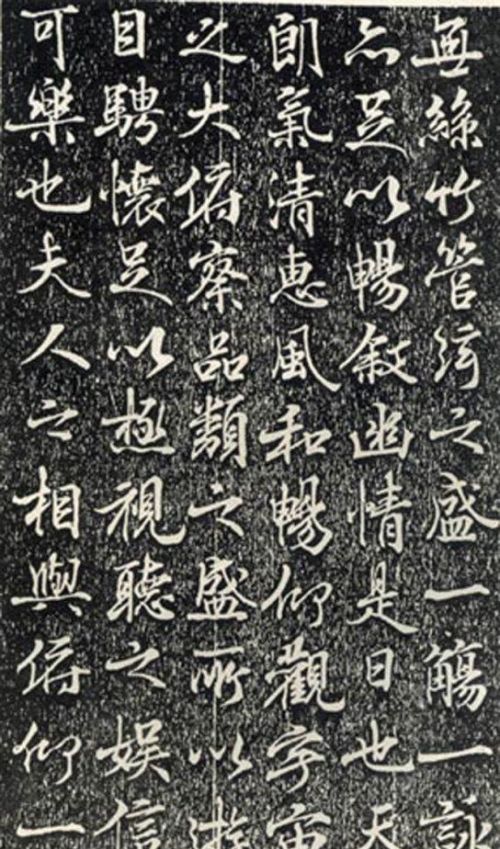 無絲竹管弦之盛一觴一詠
亦足以暢敘幽情是日也天
朗氣清惠風和暢仰觀宇宙
之大俯察品類之盛所以遊
目騁懷足以極視聽之娛信
可樂也夫人之相與俯仰一